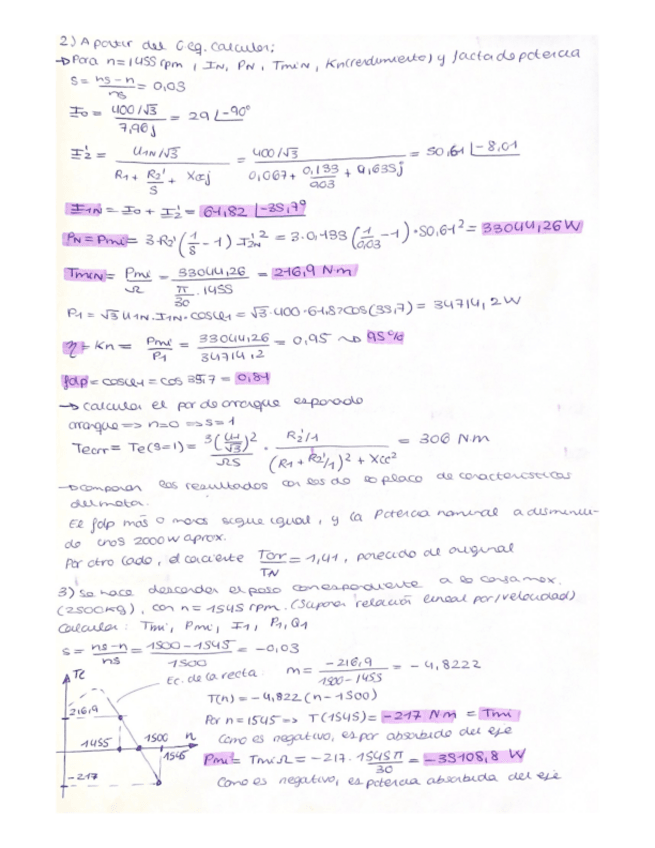 2) A partir del C eq. calcular;
→ Para n=1455 rpm, IN, PN, TmiN, Kn(rendimiento) y factor de potencia
s = (ns-n)/ns = 0,03
I0 = (400/√3)/(7,96j) = 29 ∟-90°
I2' = (U1N/√3)/(R1 + R2'/s + Xccj) = (400/√3)/(0,067 + 0,133/0,03 + 0,635j) = 50,61 ∟-8,01
I1N = I0 + I2' = 61,82 ∟-35,79
PN = Pmi = 3·R2'(1/s - 1) I2N'² = 3·0,133(1/0,03 - 1)·50,61² = 33044,26 W
TmiN = Pmi/Ω = 33044,26/(π/30 · 1455) = 216,9 N·m
P1 = √3 U1N·I1N·cosφ1 = √3·400·61,82cos(35,7) = 34714,2 W
η = Kn = Pmi/P1 = 33044,26/34714,2 = 0,95 ⇝ 95%
fdp = cosφ1 = cos 35,7 = 0,81
→ calcular el par de arranque esperado
arranque => n=0 => s=1
Tearr = Te(s=1) = 3(U1/√3)²/Ωs · (R2'/1)/((R1 + R2'/1)² + Xcc²) = 306 N·m
→ comparar los resultados con los de la placa de características
del motor.
El fdp más o menos sigue igual, y la potencia nominal a disminui-
do unos 2000W aprox.
Por otro lado, el cociente Tarr/TN = 1,41, parecido al original
3) Se hace descender el peso correspondiente a la carga max.
(2500kg), con n=1545 rpm. (Suponer relación lineal par/velocidad)
Calcular: Tmi, Pmi, I1, P1, Q1
s = (ns-n)/ns = (1500-1545)/1500 = -0,03
Te
Ec. de la recta: m = -216,9/(1500-1455) = -4,8222
T(n) = -4,822(n-1500)
216,9
Por n=1545 => T(1545) = -217 Nm = Tmi
1455 1500 n
1545
Como es negativo, es par absorbido del eje
-217
Pmi = Tmi Ω = -217 · 1545π/30 = -35108,8 W
Como es negativo, es potencia absorbida del eje